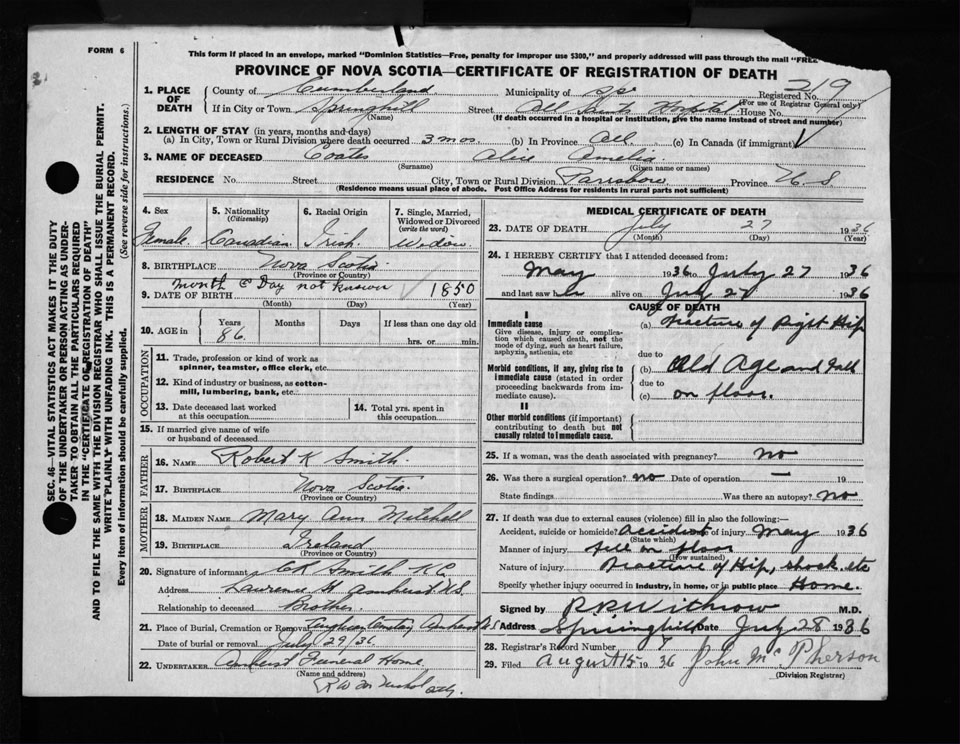 FORM 6
This form if placed in an envelope, marked "Dominion Statistics—Free, penalty for improper use $300," and properly addressed will pass through the mail "FREE
PROVINCE OF NOVA SCOTIA—CERTIFICATE OF REGISTRATION OF DEATH
SEC. 46—VITAL STATISTICS ACT MAKES IT THE DUTY
OF THE UNDERTAKER OR PERSON ACTING AS UNDER-
TAKER TO OBTAIN ALL THE PARTICULARS REQUIRED
IN THE "CERTIFICATE OF REGISTRATION OF DEATH"
AND TO FILE THE SAME WITH THE DIVISION REGISTRAR WHO SHALL ISSUE THE BURIAL PERMIT.
WRITE PLAINLY WITH UNFADING INK. THIS IS A PERMANENT RECORD.
Every item of information should be carefully supplied. (See reverse side for instructions.)
1. PLACE OF DEATH
County of Cumberland Municipality of Registered No. 29
(For use of Registrar General only)
If in City or Town Springhill Street All Saints Hospital House No.
(Name) (If death occurred in a hospital or institution, give the name instead of street and number)
2. LENGTH OF STAY (in years, months and days)
(a) In City, Town or Rural Division where death occurred 3 mos. (b) In Province All (c) In Canada (if immigrant)
3. NAME OF DECEASED Coates Alice Amelia
(Surname) (Given name or names)
RESIDENCE No. Street City, Town or Rural Division Parrsboro Province N.S
(Residence means usual place of abode. Post Office Address for residents in rural parts not sufficient)
4. Sex 5. Nationality (Citizenship) 6. Racial Origin 7. Single, Married, Widowed or Divorced (write the word)
Female Canadian Irish Widow
8. BIRTHPLACE Nova Scotia
(Province or Country)
Month & Day not known
9. DATE OF BIRTH 1850
(Month) (Day) (Year)
10. AGE in Years Months Days If less than one day old
86 hrs. or min.
OCCUPATION
11. Trade, profession or kind of work as spinner, teamster, office clerk, etc.
12. Kind of industry or business, as cotton-mill, lumbering, bank, etc.
13. Date deceased last worked at this occupation 14. Total yrs. spent in this occupation
15. If married give name of wife or husband of deceased
FATHER
16. NAME Robert K Smith
17. BIRTHPLACE Nova Scotia
(Province or Country)
MOTHER
18. MAIDEN NAME Mary Ann Mitchell
19. BIRTHPLACE Ireland
(Province or Country)
20. Signature of informant Smith K.C.
Address Laurence St Amherst N.S.
Relationship to deceased Brother
21. Place of Burial, Cremation or Removal Cemetery Amherst
Date of burial or removal July 29/36
22. UNDERTAKER Amherst Funeral Home
(Name and address)
MEDICAL CERTIFICATE OF DEATH
23. DATE OF DEATH July 27 1936
(Month) (Day) (Year)
24. I HEREBY CERTIFY that I attended deceased from:
May 1936 to July 27 1936
and last saw her alive on July 27 1936
CAUSE OF DEATH
I
Immediate cause (a) Fracture of Right Hip
Give disease, injury or complication which caused death, not the mode of dying, such as heart failure, asphyxia, asthenia, etc
due to
Morbid conditions, if any, giving rise to immediate cause (stated in order proceeding backwards from immediate cause). (b) Old Age and fall
due to
(c) on floor.
II
Other morbid conditions (if important) contributing to death but not causally related to immediate cause.
25. If a woman, was the death associated with pregnancy? no
26. Was there a surgical operation? no Date of operation — 19
State findings Was there an autopsy? no
27. If death was due to external causes (violence) fill in also the following:—
Accident, suicide or homicide? Accident Date of injury May 1936
(State which)
Manner of injury fell on floor
(How sustained)
Nature of injury Fracture of Hip, shock, etc
Specify whether injury occurred in industry, in home, or in public place Home.
Signed by Withrow M.D.
Address Springhill Date July 28 1936
28. Registrar's Record Number
29. Filed August 15 1936 John McPherson
(Division Registrar)